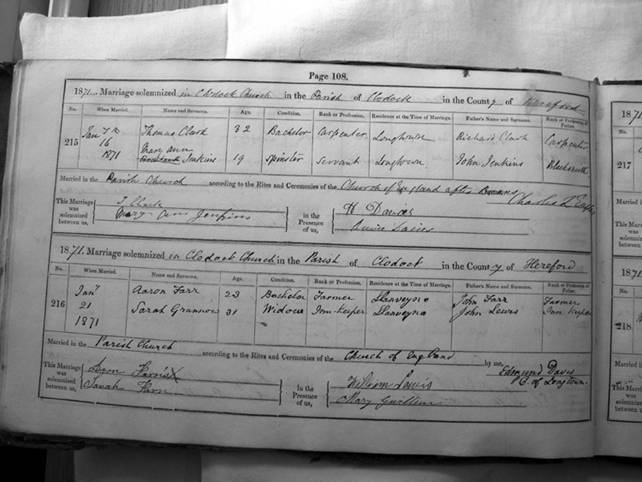 Page 108.
1871. Marriage solemnized in Clodock Church in the Parish of Clodock in the County of Hereford
No. When Married. Name and Surname. Age. Condition. Rank or Profession. Residence at the Time of Marriage. Father's Name and Surname. Rank or Profession of Father.
215 Jany 16 1871 Thomas Clark 32 Bachelor Carpenter Longtown Richard Clark Carpenter
Mary Ann Jenkins 19 Spinster Servant Longtown John Jenkins Blacksmith
Married in the Parish Church according to the Rites and Ceremonies of the Church of England after Banns
This Marriage was solemnized between us, T Clark
Mary Ann Jenkins
in the Presence of us, W Davies
1871. Marriage solemnized in Clodock Church in the Parish of Clodock in the County of Hereford
No. When Married. Name and Surname. Age. Condition. Rank or Profession. Residence at the Time of Marriage. Father's Name and Surname. Rank or Profession of Father.
216 Jany 21 1871 Aaron Farr 23 Bachelor Farmer John Farr Farmer
Sarah 31 Widow Inn-keeper John Lewis Inn keeper
Married in the Parish Church according to the Rites and Ceremonies of the Church of England by me, Edmund Davis
of Longtown
This Marriage was solemnized between us,
Sarah
In the Presence of us, William Lewis
Mary
217
218